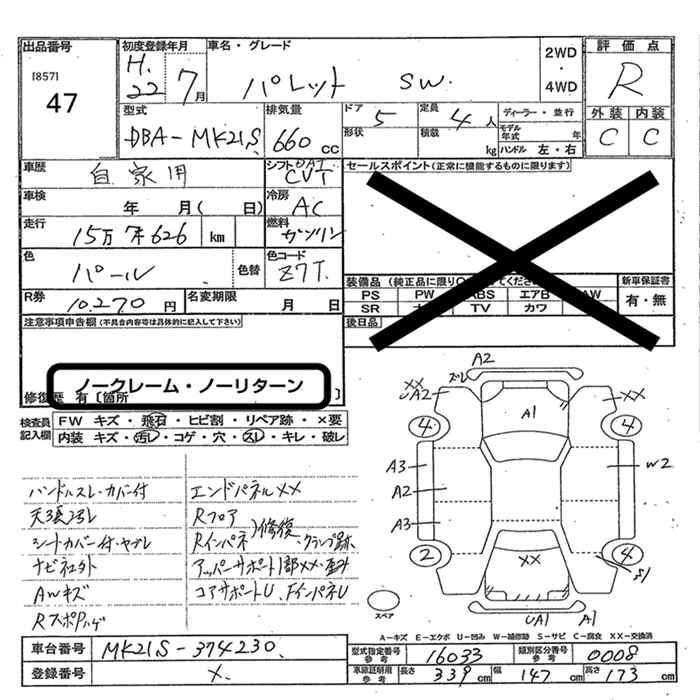 出品番号
[857]
47
初度登録年月
H.22 7月
車名・グレード
パレット SW.
2WD・4WD
評価点
R
外装 内装
C C
型式
DBA-MK21S
排気量
660 cc
ドア
5
形状
定員
4人
積載 kg
ディーラー・並行
モデル年式 年
ハンドル 左・右
車歴
自家用
シフト
CVT
車検
年 月( 日)
冷房
AC
走行
15万7千626 km
燃料
ガソリン
色
パール
色替
色コード
Z7T.
R券
10,270 円
名変期限
月 日
セールスポイント(正常に機能するものに限ります)
装備品
PS PW ABS エアB AW
SR TV カワ
新車保証書
有・無
後日品
注意事項申告欄(不具合内容等は具体的に記入して下さい)
ノークレーム・ノーリターン
修復歴 有〔箇所 〕
検査員記入欄
FW キズ・飛石・ヒビ割・リペア跡・×要
内装 キズ・汚レ・コゲ・穴・スレ・キレ・破レ
ハンドルスレ・カバー付
天張汚レ
シートカバー付・ヤブレ
ナビ社外
AWキズ
Rスポハゲ
エンドパネルXX
Rフロア
Rインパネ 修復、クランプ跡
アッパーサポート1部XX・歪み
コアサポートU、FインパネU
A2
ズレ
XX
UA2
A1
XX
4
4
A3
A2
A3
W2
2
4
XX
S1
UA1
A1
スペア
A-キズ E-エクボ U-凹み W-補修跡 S-サビ C-腐食 XX-交換済
車台番号
MK21S-374230.
登録番号
X.
型式指定番号 参考
16033
類別区分番号 参考
0008
車庫証明用 参考
長さ 339 cm
幅 147 cm
高さ 173 cm